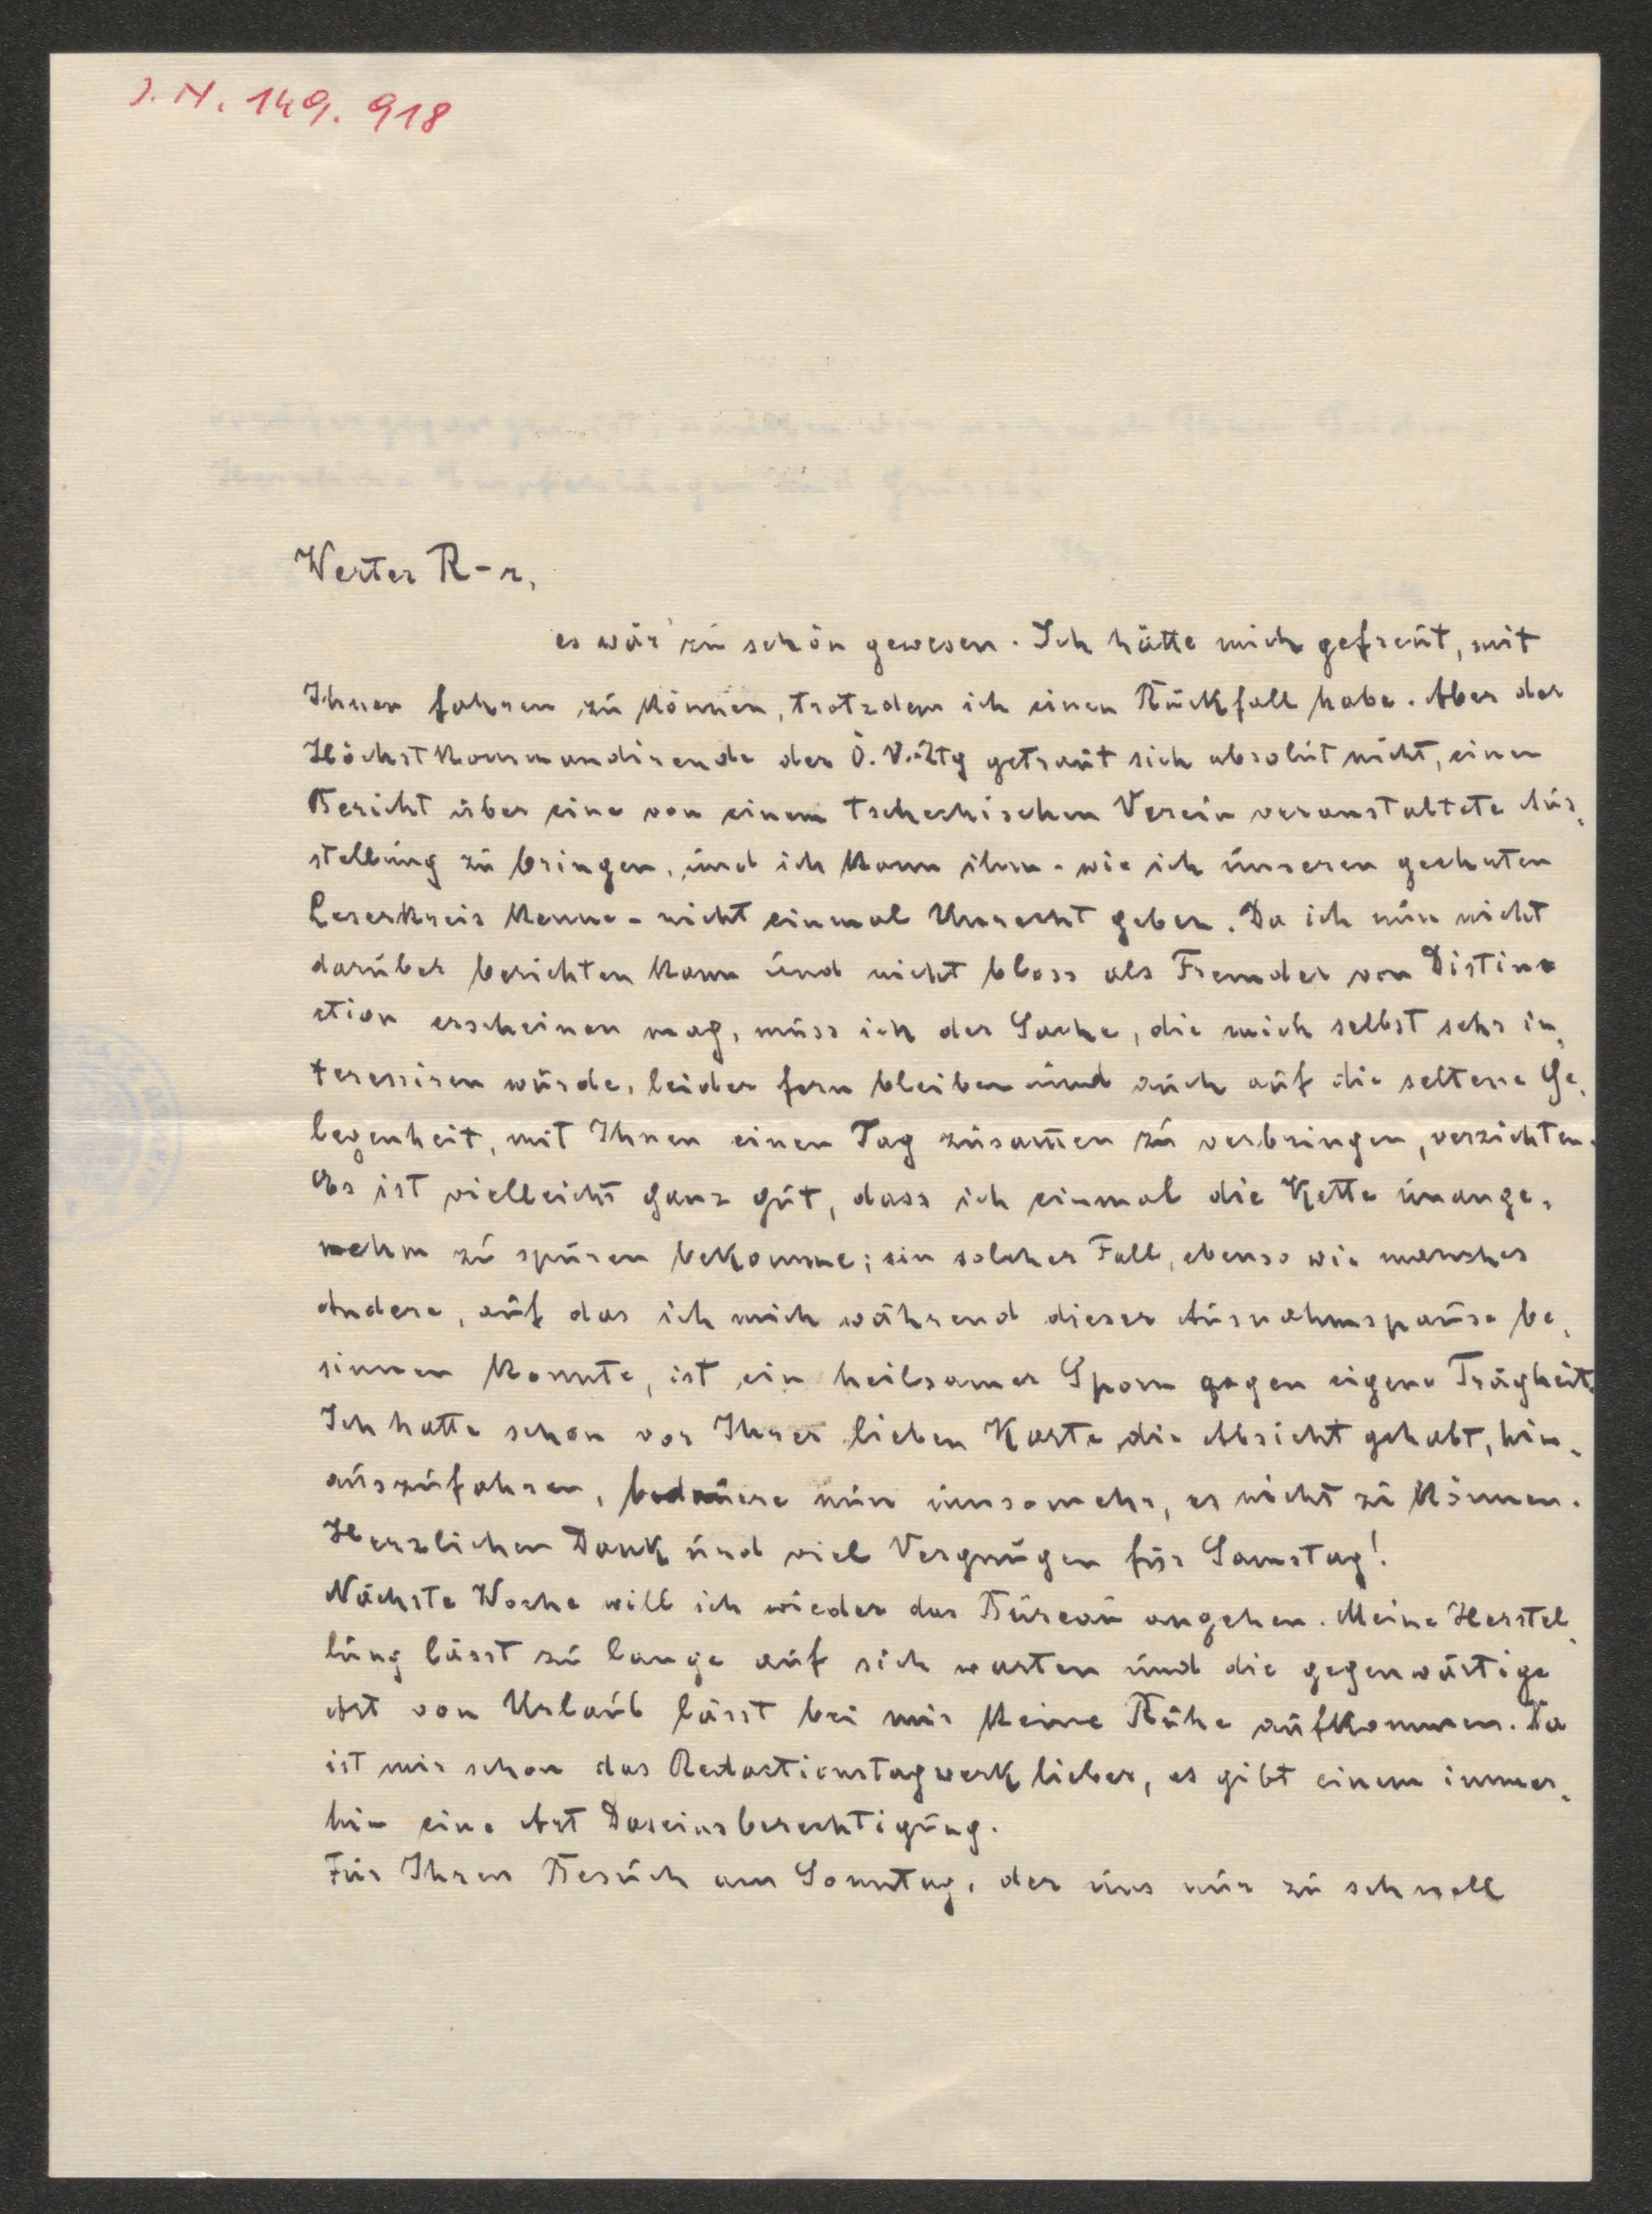 J. N. 149.918
Werter R-r,
es wär' zu schön gewesen. Ich hätte mich gefreut, mit
Ihnen fahren zu können, trotzdem ich einen Rückfall habe. Aber der
Höchstkommandirende der Ö. V.-Ztg getraut sich absolut nicht, einen
Bericht über eine von einem tschechischen Verein veranstaltete Aus-
stellung zu bringen, und ich kann ihm - wie ich unseren geehrten
Leserkreis kenne - nicht einmal Unrecht geben. Da ich nun nicht
darüber berichten kann und nicht bloss als Fremder von Distin-
ction erscheinen mag, muss ich der Sache, die mich selbst sehr in-
teressiren würde, leider fern bleiben und auch auf die seltene Ge-
legenheit, mit Ihnen einen Tag zusam̅en zu verbringen, verzichten.
Es ist vielleicht ganz gut, dass ich einmal die Kette unange-
nehm zu spüren bekomme; ein solcher Fall, ebenso wie manches
Andere, auf das ich mich während dieser Ausnahmspause be-
sinnen konnte, ist ein heilsamer Sporn gegen eigene Trägheit.
Ich hatte schon vor Ihrer lieben Karte die Absicht gehabt, hin-
auszufahren, bedauere nun umsomehr, es nicht zu können.
Herzlichen Dank und viel Vergnügen für Samstag!
Nächste Woche will ich wieder das Büreau angehen. Meine Herstel-
lung lässt zu lange auf sich warten und die gegenwärtige
Art von Urlaub lässt bei mir keine Ruhe aufkommen. Da
ist mir schon das Redactionstagwerk lieber, es gibt einem immer-
hin eine Art Daseinsberechtigung.
Für Ihren Besuch am Sonntag, der uns nur zu schnell